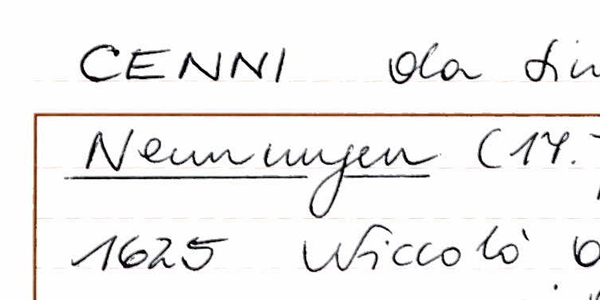 CENNI da
Nennungen (14.
1625 Niccolò